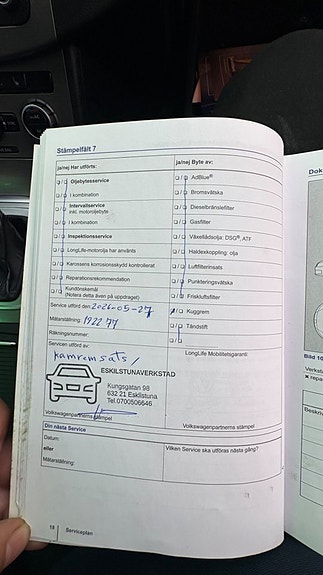 Stämpelfält 7
ja/nej Har utförts:
ja/nej Byte av:
Oljebytesservice
I kombination
Intervallservice
inkl. motoroljebyte
I kombination
Inspektionsservice
LongLife-motorolja har använts
Karossens korrosionsskydd kontrollerat
Reparationsrekommendation
Kundönskemål
(Notera detta även på uppdraget)
AdBlue®
Bromsvätska
Dieselbränslefilter
Gasfilter
Växellådsolja: DSG®, ATF
Haldexkoppling: olja
Luftfilterinsats
Punkteringsvätska
Friskluftsfilter
Kuggrem
Tändstift
Service utförd den: 2026-05-27
Mätarställning: 192277
Räkningsnummer:
Servicen utförd av:
LongLife Mobilitetsgaranti:
kamremsats/
ESKILSTUNAVERKSTAD
Kungsgatan 98
632 21 Eskilstuna
Tel.0700506646
Volkswagenpartnerns stämpel
Volkswagenpartnerns stämpel
Din nästa Service
Datum:
eller
Mätarställning:
Vilken Service ska utföras nästa gång?
18
Serviceplan
Dok
Bild 10
Verkst
repa
Beskri